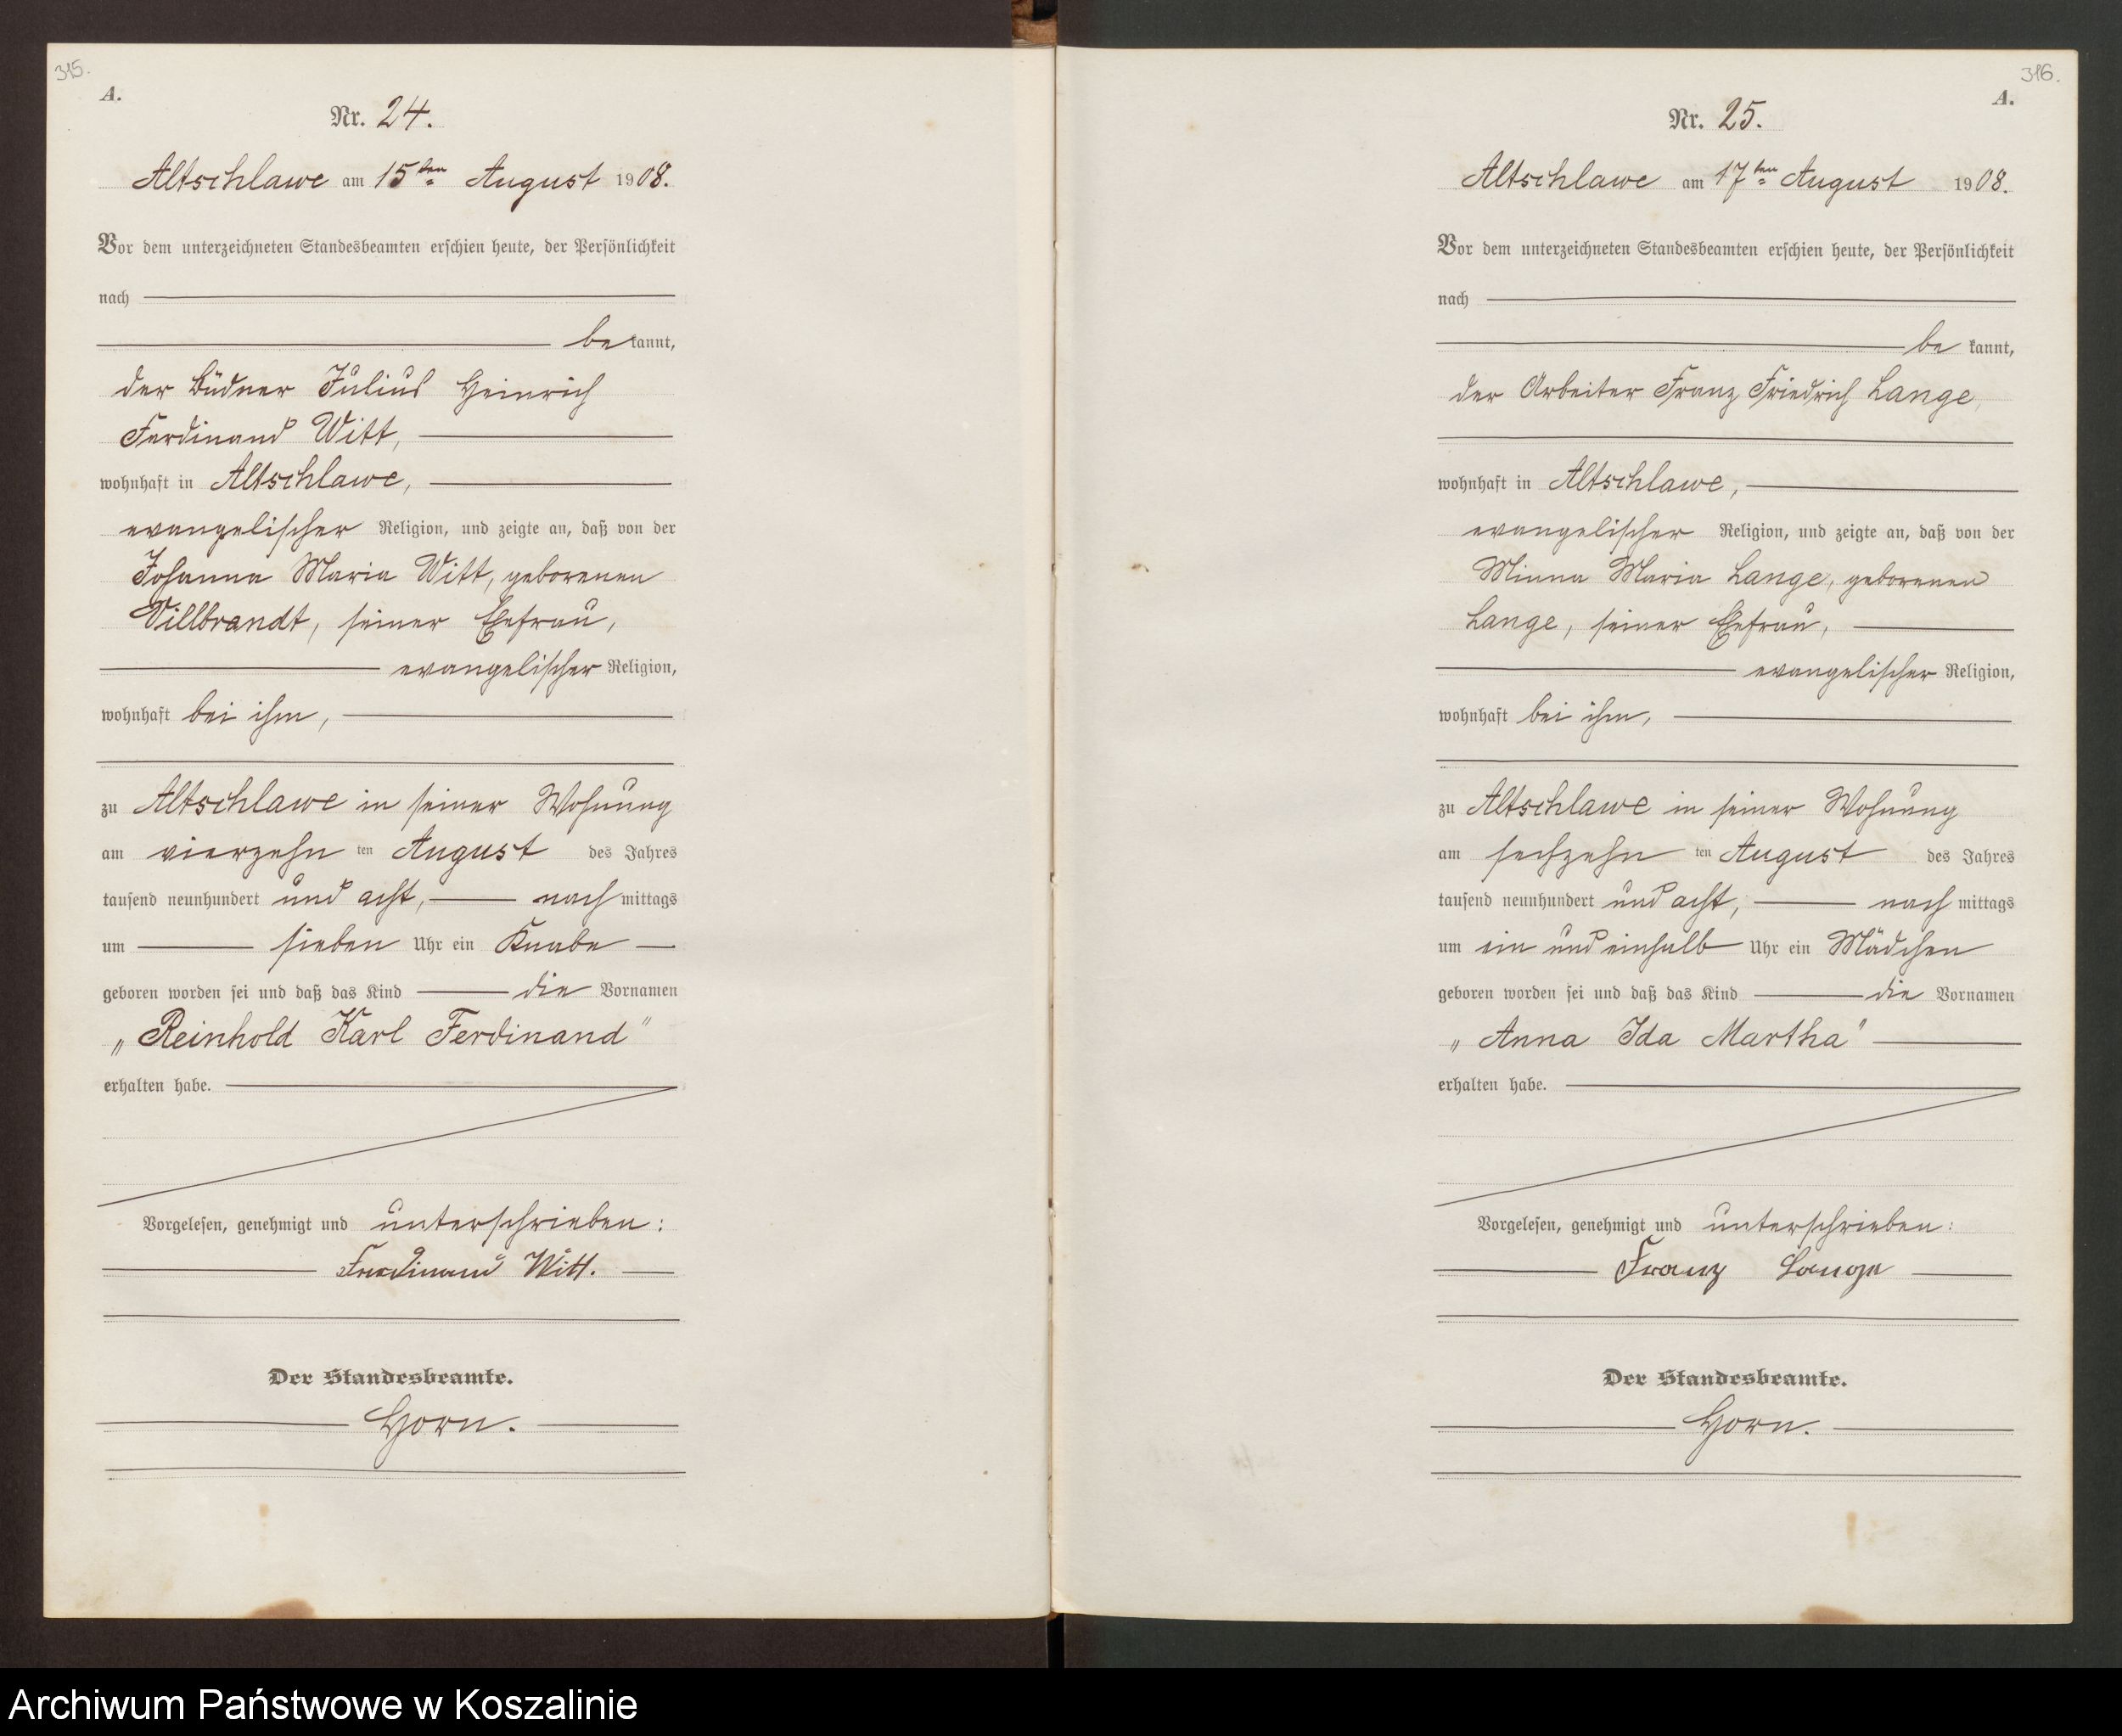 315.
A.
Nr. 24.
Altschlawe am 15ten August 1908.
Vor dem unterzeichneten Standesbeamten erschien heute, der Persönlichkeit
nach
bekannt,
der Büdner Julius Heinrich
Ferdinand Witt,
wohnhaft in Altschlawe,
evangelischer Religion, und zeigte an, daß von der
Johanna Maria Witt, geborenen
Villbrandt, seiner Ehefrau,
evangelischer Religion,
wohnhaft bei ihm,
zu Altschlawe in seiner Wohnung
am vierzehn ten August des Jahres
tausend neunhundert und acht, nachmittags
um sieben Uhr ein Knabe
geboren worden sei und daß das Kind die Vornamen
„Reinhold Karl Ferdinand"
erhalten habe.
Vorgelesen, genehmigt und unterschrieben:
Ferdinand Witt.
Der Standesbeamte.
Horn.
316.
A.
Nr. 25.
Altschlawe am 17ten August 1908.
Vor dem unterzeichneten Standesbeamten erschien heute, der Persönlichkeit
nach
bekannt,
der Arbeiter Franz Friedrich Lange,
wohnhaft in Altschlawe,
evangelischer Religion, und zeigte an, daß von der
Minna Maria Lange, geborenen
Lange, seiner Ehefrau,
evangelischer Religion,
wohnhaft bei ihm,
zu Altschlawe in seiner Wohnung
am sechzehn ten August des Jahres
tausend neunhundert und acht, nachmittags
um ein und einhalb Uhr ein Mädchen
geboren worden sei und daß das Kind die Vornamen
„Anna Ida Martha"
erhalten habe.
Vorgelesen, genehmigt und unterschrieben:
Franz Lange
Der Standesbeamte.
Horn.
Archiwum Państwowe w Koszalinie